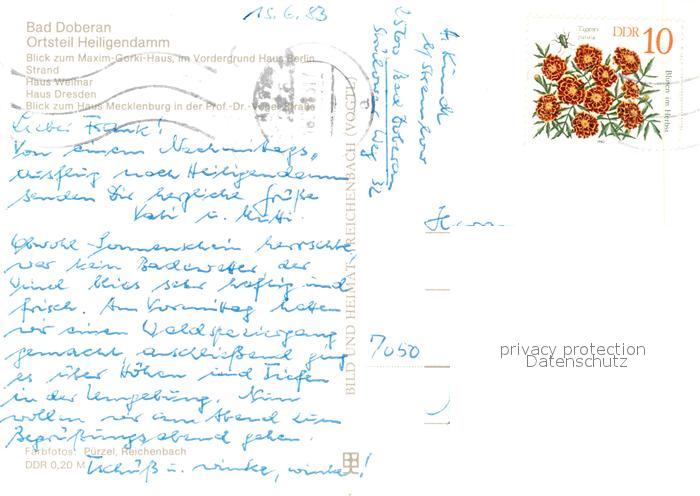 15.6.83
Bad Doberan
Ortsteil Heiligendamm
Blick zum Maxim-Gorki-Haus, im Vordergrund Haus Berlin
Strand
Haus Weimar
Haus Dresden
Blick zum Haus Mecklenburg in der Prof.-Dr.-Vogel-Straße
Lieber Frank!
Von einem Nachmittags-
ausflug nach Heiligendamm
senden Dir herzliche Grüße
Kati u. Mutti.
Obwohl Sonnenschein herrschte,
war kein Badewetter, der
Wind blies sehr heftig und
frisch. Am Vormittag hatten
wir einen Waldspaziergang
gemacht, anschließend ging
es über Höhen und Tiefen
in der Umgebung. Nun
wollen wir am Abend zum
Begrüßungsabend gehen.
Tschüß u. winke, winke!
Farbfotos: Pürzel, Reichenbach
DDR 0,20 M
BILD UND HEIMAT REICHENBACH (VOGTL)
2560 Bad Doberan
Weg 32
DDR 10
Tagetes patula
Blüten im Herbst
Herrn
7050
privacy protection
Datenschutz